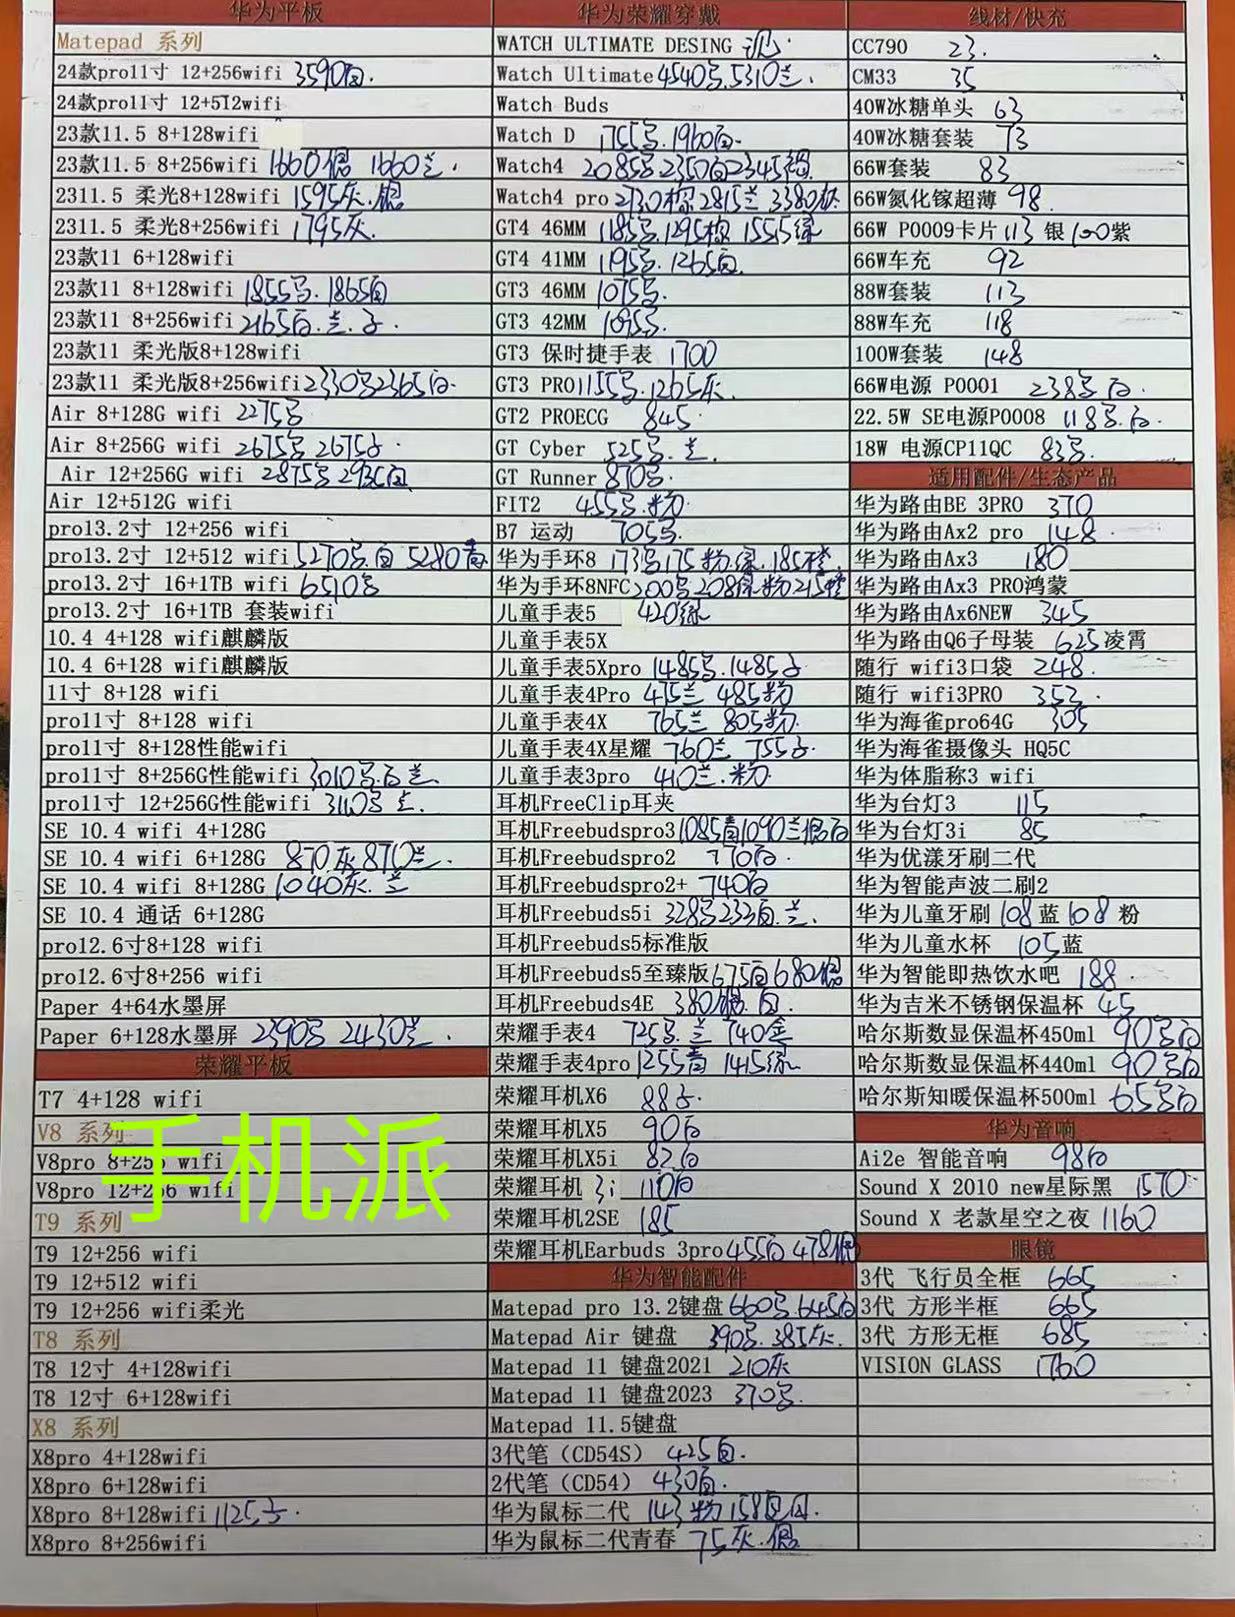 华为平板
Matepad 系列
24款pro11寸 12+256wifi 3590白.
24款pro11寸 12+512wifi
23款11.5 8+128wifi
23款11.5 8+256wifi 1660银 1660兰.
2311.5 柔光8+128wifi 1595灰.银
2311.5 柔光8+256wifi 1795灰.
23款11 6+128wifi
23款11 8+128wifi 1855 1865白
23款11 8+256wifi 2165白.兰.
23款11 柔光版8+128wifi
23款11 柔光版8+256wifi 2330 2365白.
Air 8+128G wifi 2275
Air 8+256G wifi 2675 2675
Air 12+256G wifi 2875 2935白
Air 12+512G wifi
pro13.2寸 12+256 wifi
pro13.2寸 12+512 wifi 5270 白 5280青
pro13.2寸 16+1TB wifi 6510
pro13.2寸 16+1TB 套装wifi
10.4 4+128 wifi麒麟版
10.4 6+128 wifi麒麟版
11寸 8+128 wifi
pro11寸 8+128 wifi
pro11寸 8+128性能wifi
pro11寸 8+256G性能wifi 3010 白 兰.
pro11寸 12+256G性能wifi 3110 兰.
SE 10.4 wifi 4+128G
SE 10.4 wifi 6+128G 870灰 870兰.
SE 10.4 wifi 8+128G 1040灰.兰
SE 10.4 通话 6+128G
pro12.6寸8+128 wifi
pro12.6寸8+256 wifi
Paper 4+64水墨屏
Paper 6+128水墨屏 2390 2430兰.
荣耀平板
T7 4+128 wifi
V8 系列
V8pro 8+256 wifi
V8pro 12+256 wifi
手机派
T9 系列
T9 12+256 wifi
T9 12+512 wifi
T9 12+256 wifi柔光
T8 系列
T8 12寸 4+128wifi
T8 12寸 6+128wifi
X8 系列
X8pro 4+128wifi
X8pro 6+128wifi
X8pro 8+128wifi 1125
X8pro 8+256wifi
华为荣耀穿戴
WATCH ULTIMATE DESING
Watch Ultimate 4540 5310兰.
Watch Buds
Watch D 1755 1960白.
Watch4 2085 2350白 2345
Watch4 pro 2730棕 2815兰 3380钛
GT4 46MM 1185 1295棕 1555绿
GT4 41MM 1195 1265白.
GT3 46MM 1075
GT3 42MM 1095
GT3 保时捷手表 1700
GT3 PRO 1155 1265灰.
GT2 PROECG 845
GT Cyber 525 兰.
GT Runner 870
FIT2 455 粉.
B7 运动 705
华为手环8 173 175粉.绿.185橙.
华为手环8NFC 200 208绿.粉 215橙
儿童手表5 420绿
儿童手表5X
儿童手表5Xpro 1485 1485
儿童手表4Pro 475兰 485粉
儿童手表4X 765兰 805粉.
儿童手表4X星耀 760兰 755
儿童手表3pro 410兰.粉
耳机FreeClip耳夹
耳机Freebudspro3 1085青1090兰银白
耳机Freebudspro2 770白.
耳机Freebudspro2+ 740白
耳机Freebuds5i 328 233白.兰.
耳机Freebuds5标准版
耳机Freebuds5至臻版 675白 680银
耳机Freebuds4E 380银.白.
荣耀手表4 725 兰 740金
荣耀手表4pro 1255青 1415绿
荣耀耳机X6 88
荣耀耳机X5 90白
荣耀耳机X5i 82白
荣耀耳机 3i 110白
荣耀耳机2SE 185
荣耀耳机Earbuds 3pro 455白 478银
华为智能配件
Matepad pro 13.2键盘 660 645白
Matepad Air 键盘 390 385灰.
Matepad 11 键盘2021 210灰
Matepad 11 键盘2023 370
Matepad 11.5键盘
3代笔（CD54S） 425白.
2代笔（CD54） 430白.
华为鼠标二代 143粉 158白
华为鼠标二代青春 75灰.银
线材/快充
CC790 23.
CM33 35
40W冰糖单头 63
40W冰糖套装 73
66W套装 83
66W氮化镓超薄 98.
66W P0009卡片 113 银 100紫
66W车充 92
88W套装 113
88W车充 118
100W套装 148
66W电源 P0001 238 白.
22.5W SE电源P0008 118 白.
18W 电源CP11QC 83
适用配件/生态产品
华为路由BE 3PRO 370
华为路由Ax2 pro 148.
华为路由Ax3 180
华为路由Ax3 PRO鸿蒙
华为路由Ax6NEW 345
华为路由Q6子母装 625凌霄
随行 wifi3口袋 248.
随行 wifi3PRO 353.
华为海雀pro64G 305
华为海雀摄像头 HQ5C
华为体脂称3 wifi
华为台灯3 115
华为台灯3i 85
华为优漾牙刷二代
华为智能声波二刷2
华为儿童牙刷 108蓝 108 粉
华为儿童水杯 105蓝
华为智能即热饮水吧 188.
华为吉米不锈钢保温杯 45
哈尔斯数显保温杯450ml 90 白
哈尔斯数显保温杯440ml 90 白
哈尔斯知暖保温杯500ml 65 白
华为音响
Ai2e 智能音响 98白
Sound X 2010 new星际黑 1570
Sound X 老款星空之夜 1160
眼镜
3代 飞行员全框 665
3代 方形半框 665
3代 方形无框 685
VISION GLASS 1760